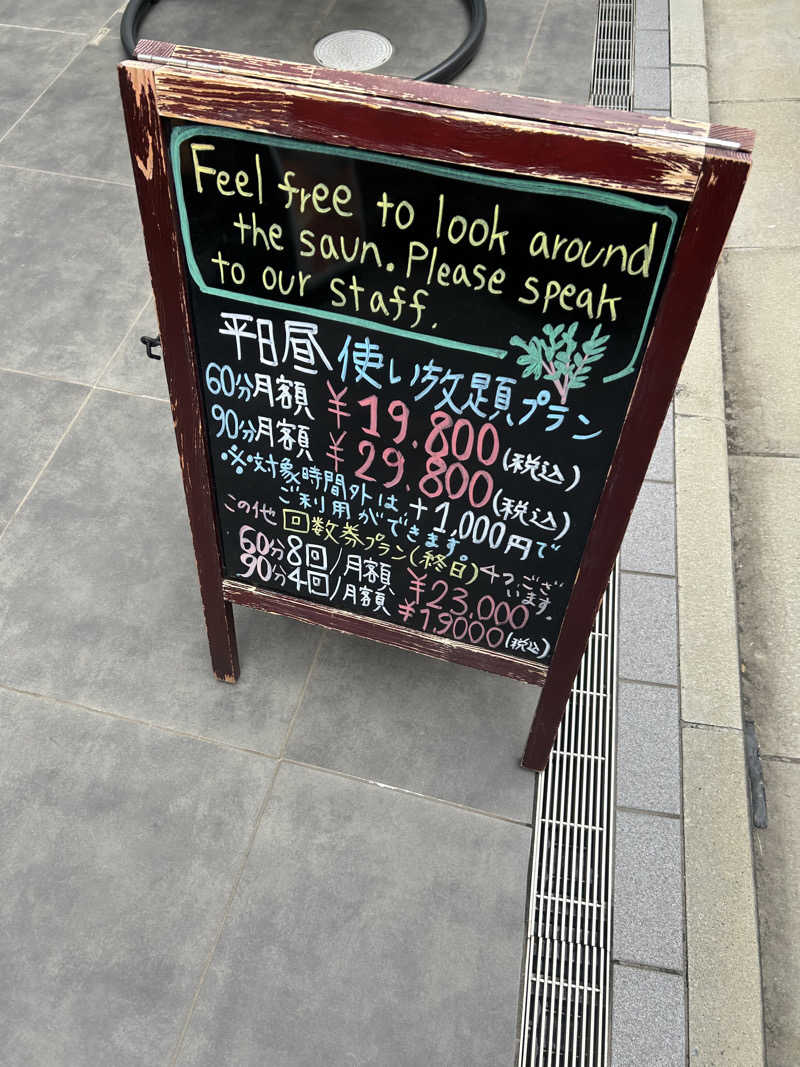 Feel free to look around
the saun. Please speak
to our staff.
平日昼 使い放題プラン
60分月額 ¥19.800(税込)
90分月額 ¥29.800(税込)
※対象時間外は、+1,000円で
ご利用ができます。
この他 回数券プラン(終日)4つ、ございます。
60分8回/月額 ¥23,000
90分4回/月額 ¥19000(税込)